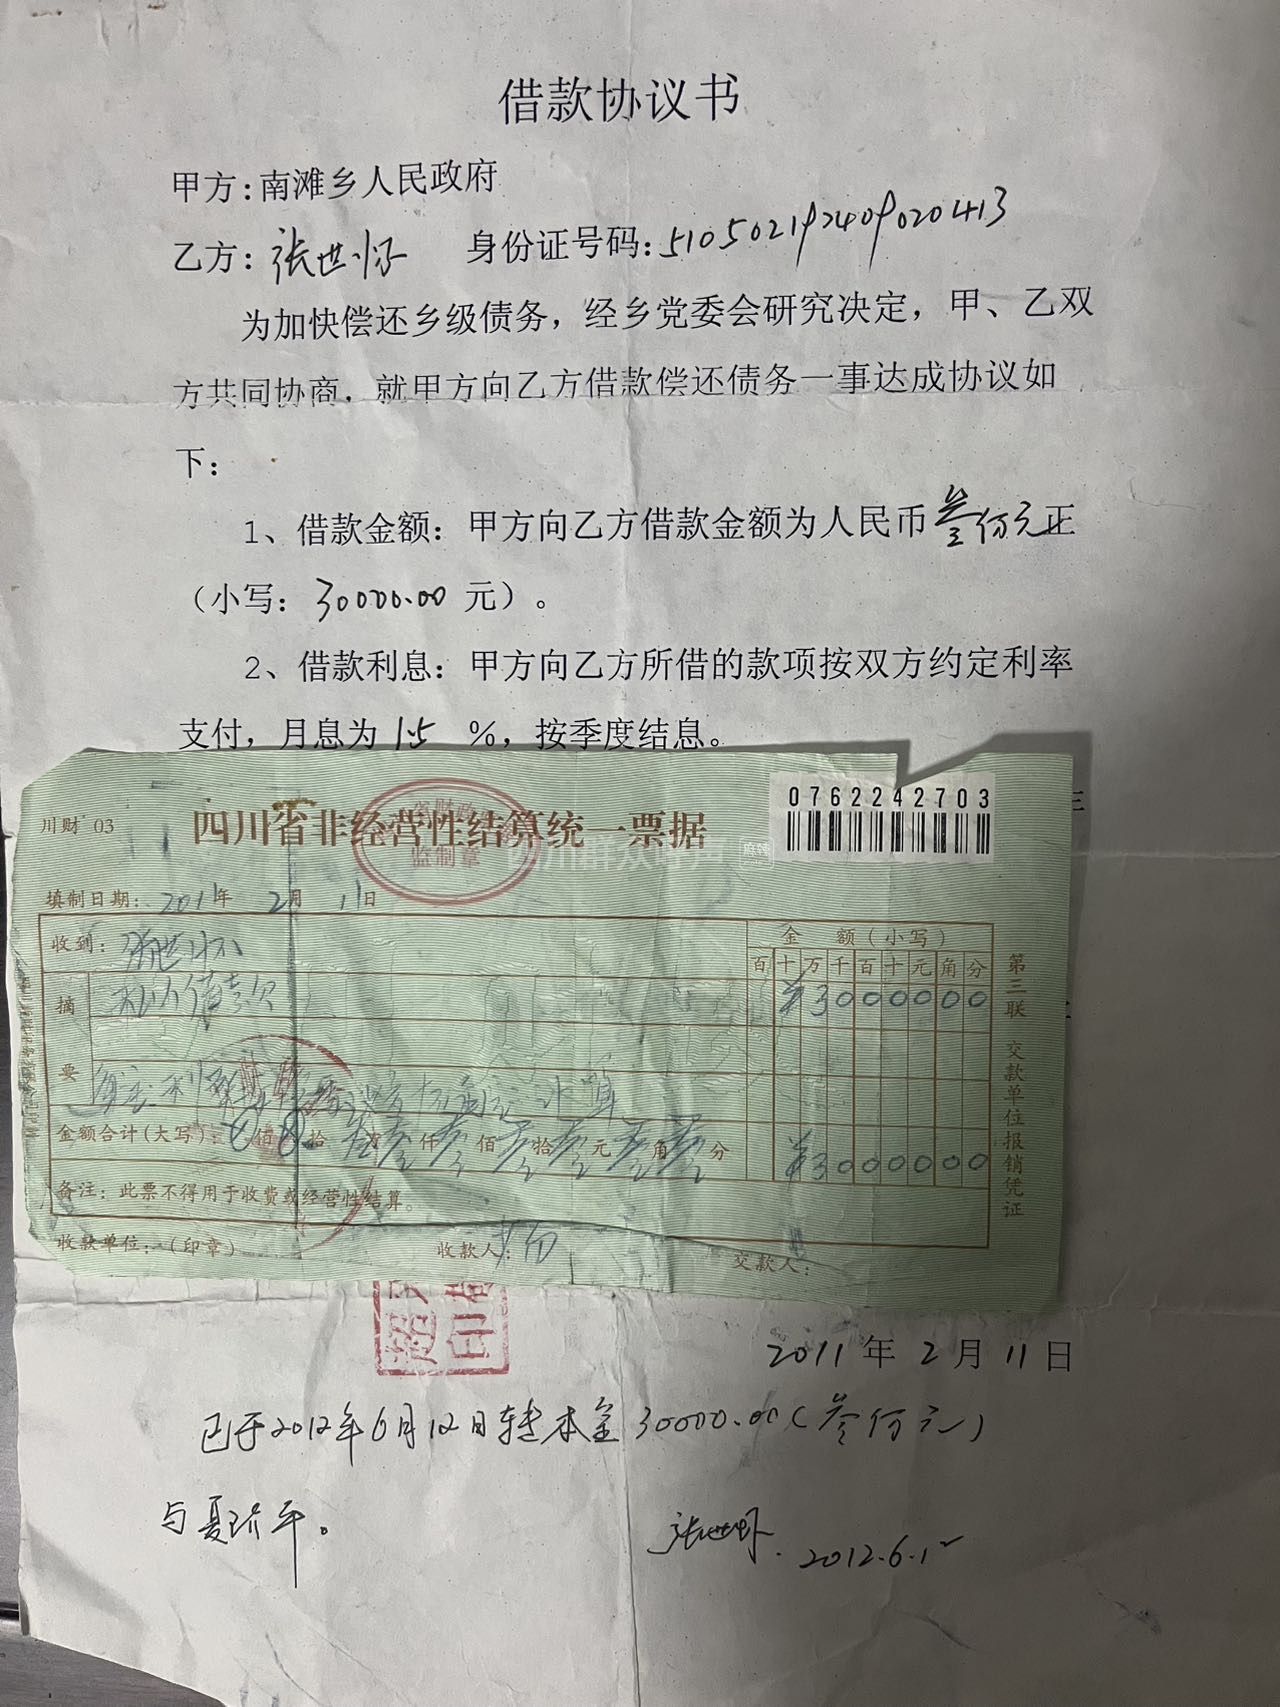 借款协议书
甲方:南滩乡人民政府
乙方:张世怀 身份证号码:510502192409020413
为加快偿还乡级债务，经乡党委会研究决定，甲、乙双
方共同协商，就甲方向乙方借款偿还债务一事达成协议如
下：
1、借款金额：甲方向乙方借款金额为人民币叁仟元正
（小写：30000.00 元）。
2、借款利息：甲方向乙方所借的款项按双方约定利率
支付，月息为 1.5 %，按季度结息。
0762242703
川财 03
四川省非经营性结算统一票据
监制章
四川群众呼声
填制日期：2011年 2月 11日
收到：张世怀
金 额（小写）
百十万千百十元角分
摘
私人借款
¥30000000
要
金额合计(大写)： 佰 拾 万 仟 佰 拾 元 角 分
¥30000000
备注：此票不得用于收费或经营性结算。
收款单位：（印章） 收款人： 交款人：
第三联 交款单位报销凭证
印
2011 年 2 月 11 日
已于2012年6月12日转本金30000.00(叁仟元)
与夏 平。
张世怀. 2012.6.12